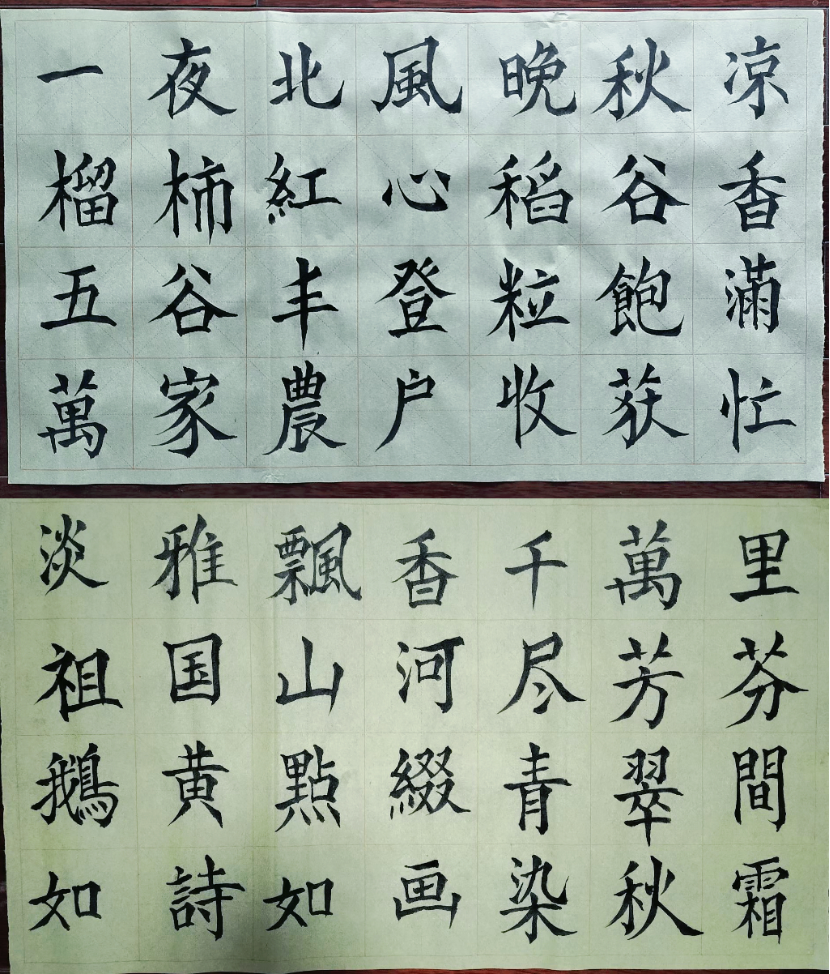 一夜北風晚秋凉
榴柿紅心稻谷香
五谷丰登粒飽滿
萬家農户收获忙
淡雅飄香千萬里
祖国山河尽芳芬
鵝黄點綴青翠間
如詩如画染秋霜